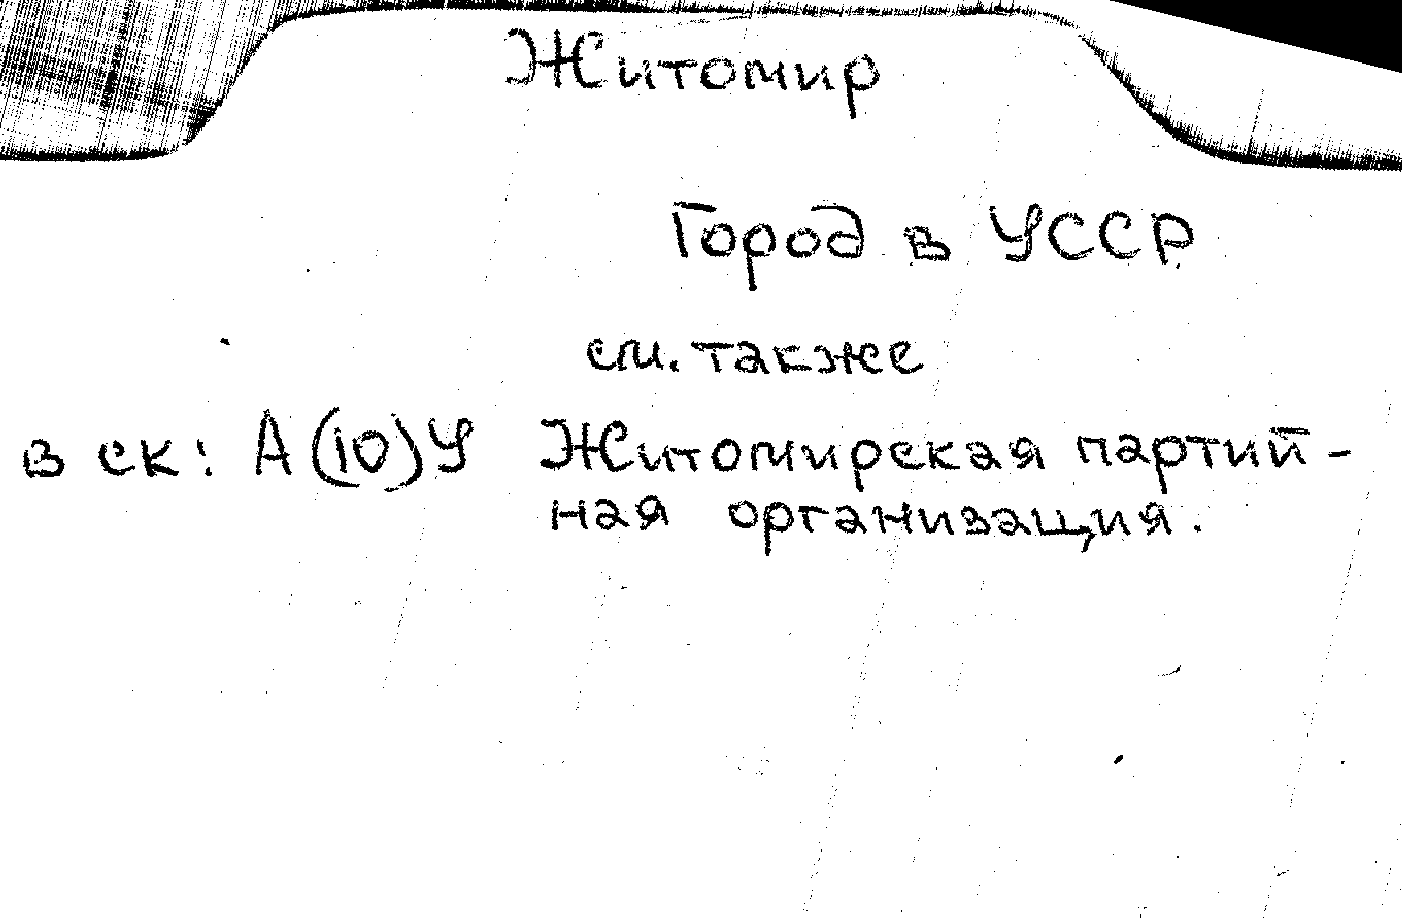 Житомир
Город в УССР
см. также
в ск: А(10)У Житомирская партий-
ная организация.